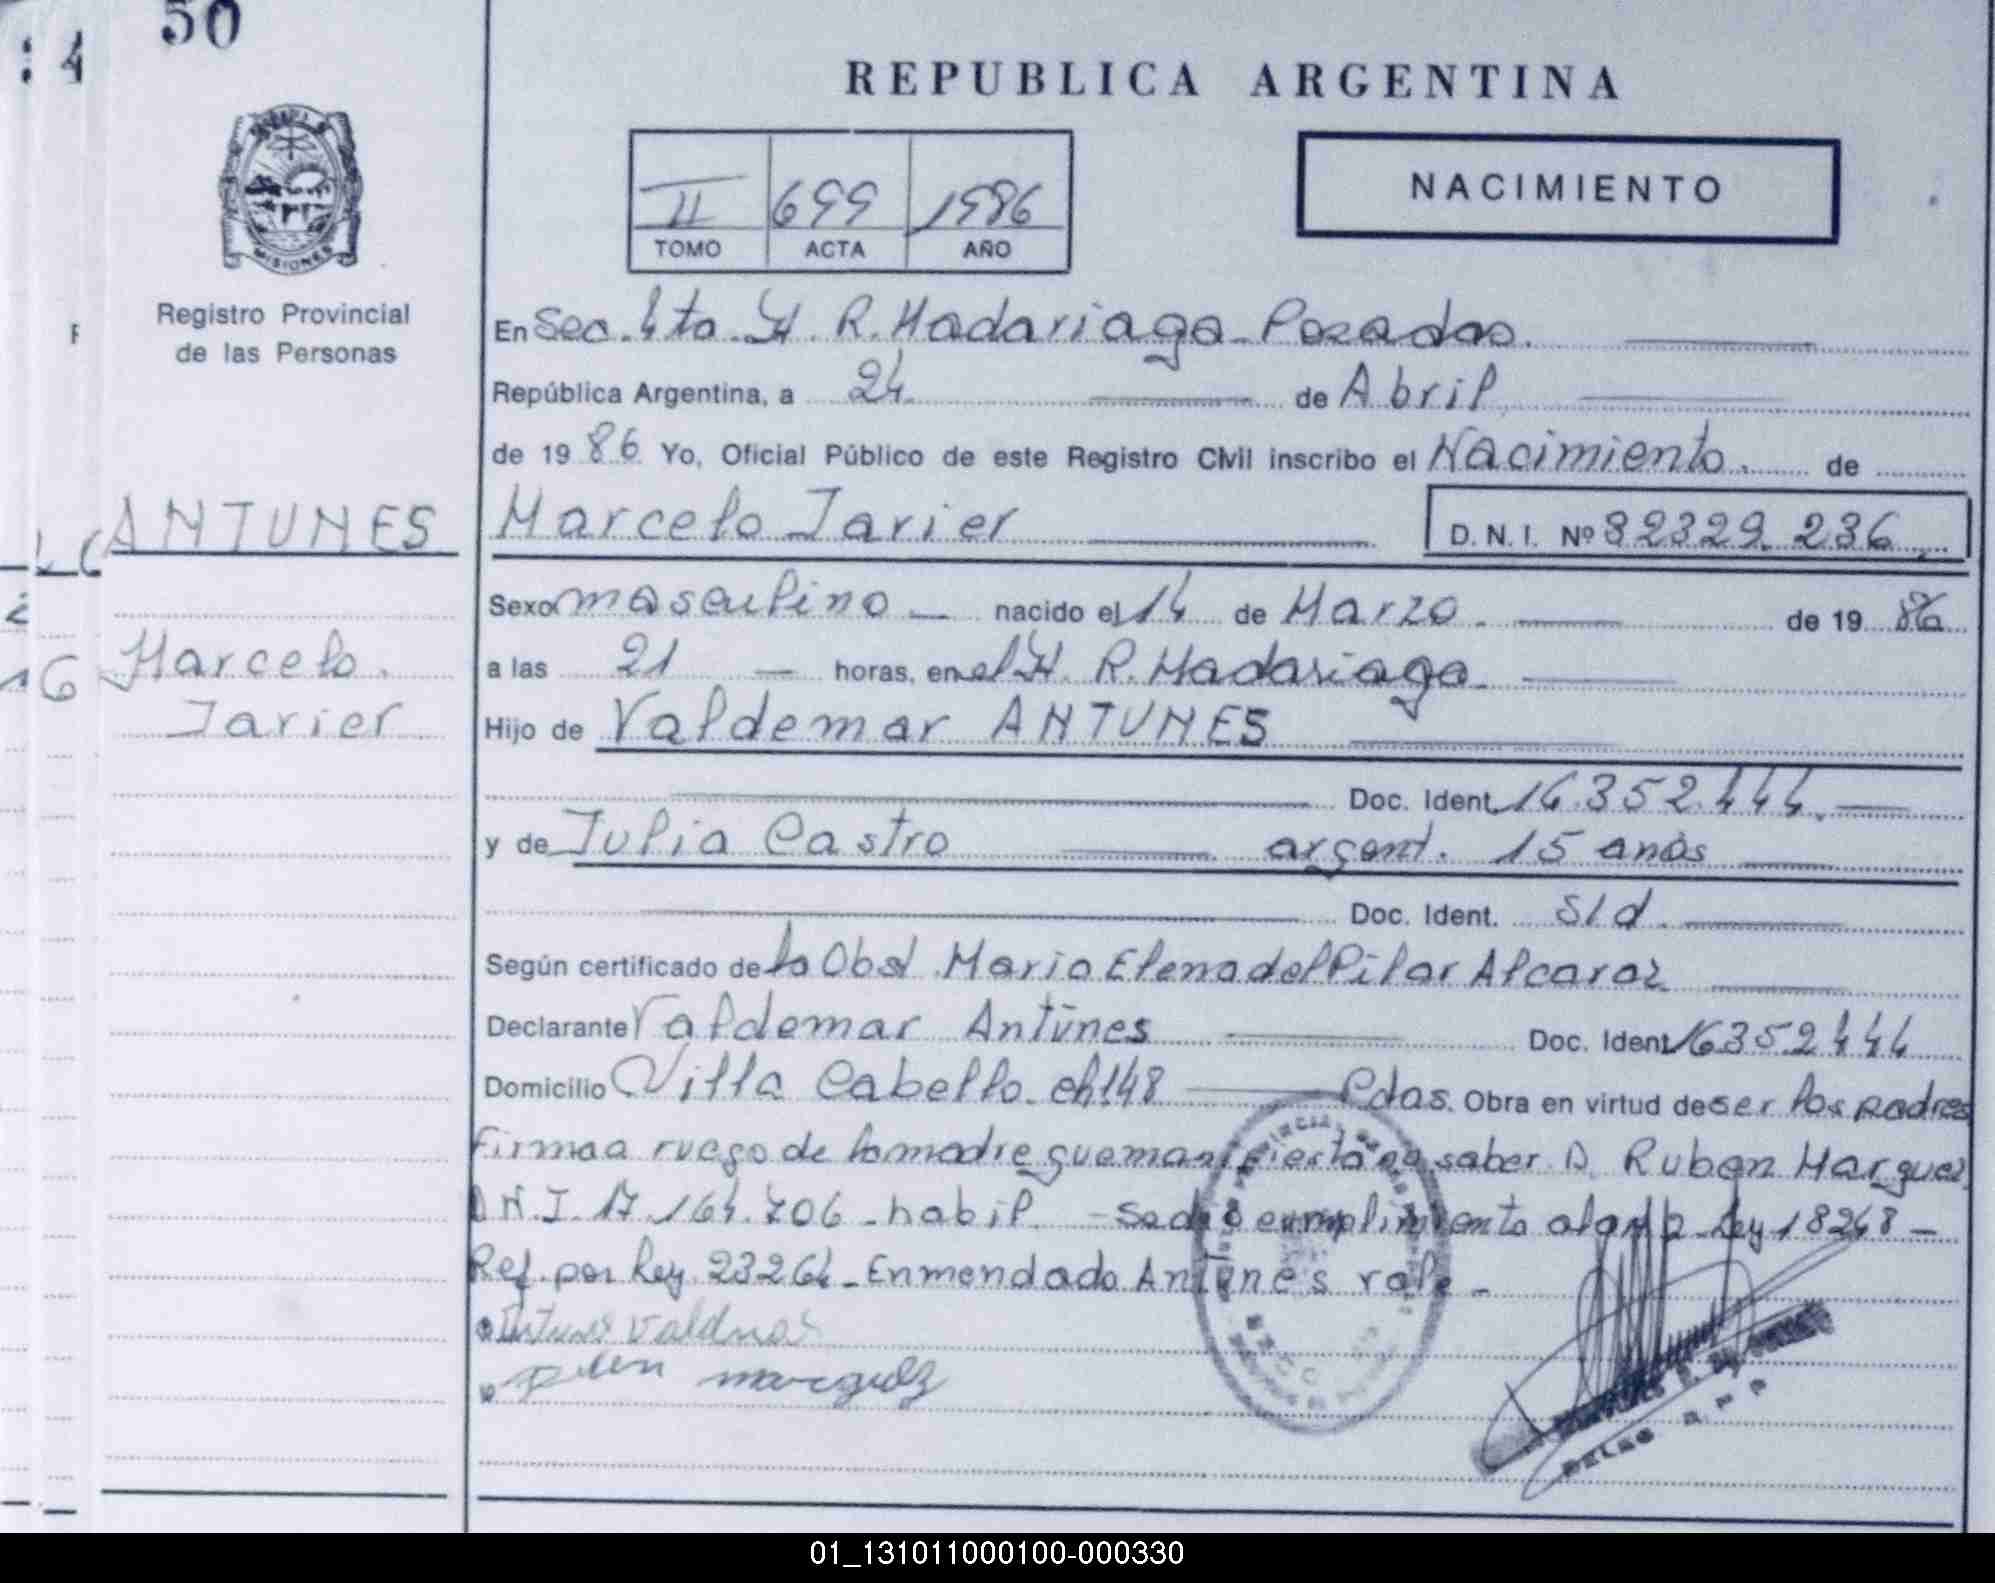 50
: 4
REPUBLICA ARGENTINA
II 699 1986
TOMO ACTA AÑO
NACIMIENTO
MISIONES
Registro Provincial
de las Personas
En Sec. 4ta. H. R. Madariaga - Posadas.
República Argentina, a 24 de Abril
de 1986 Yo, Oficial Público de este Registro Civil inscribo el Nacimiento. de
ANTUNES Marcelo Javier D. N. I. Nº 32329.236
Sexo masculino nacido el 14 de Marzo de 1986
Marcelo a las 21 horas, en el H. R. Madariaga
Javier Hijo de Valdemar ANTUNES
Doc. Ident. 16.352.444
y de Julia Castro argent. 15 años
Doc. Ident. s/d.
Según certificado de la Obst. Maria Elena del Pilar Alcaraz
Declarante Valdemar Antúnes Doc. Ident. 16352444
Domicilio Villa Cabello ch 148 Pdas. Obra en virtud de ser los padres
Firma a ruego de la madre que manifiesta no saber D. Ruben Marquez
D.N.I. 17.164.706 - habil. - Se dió cumplimiento al art 2 - Ley 18248 -
Ref. por Ley 23264 - Enmendado Antunes vale -
Antunes Valdmar
marquez
01_131011000100-000330